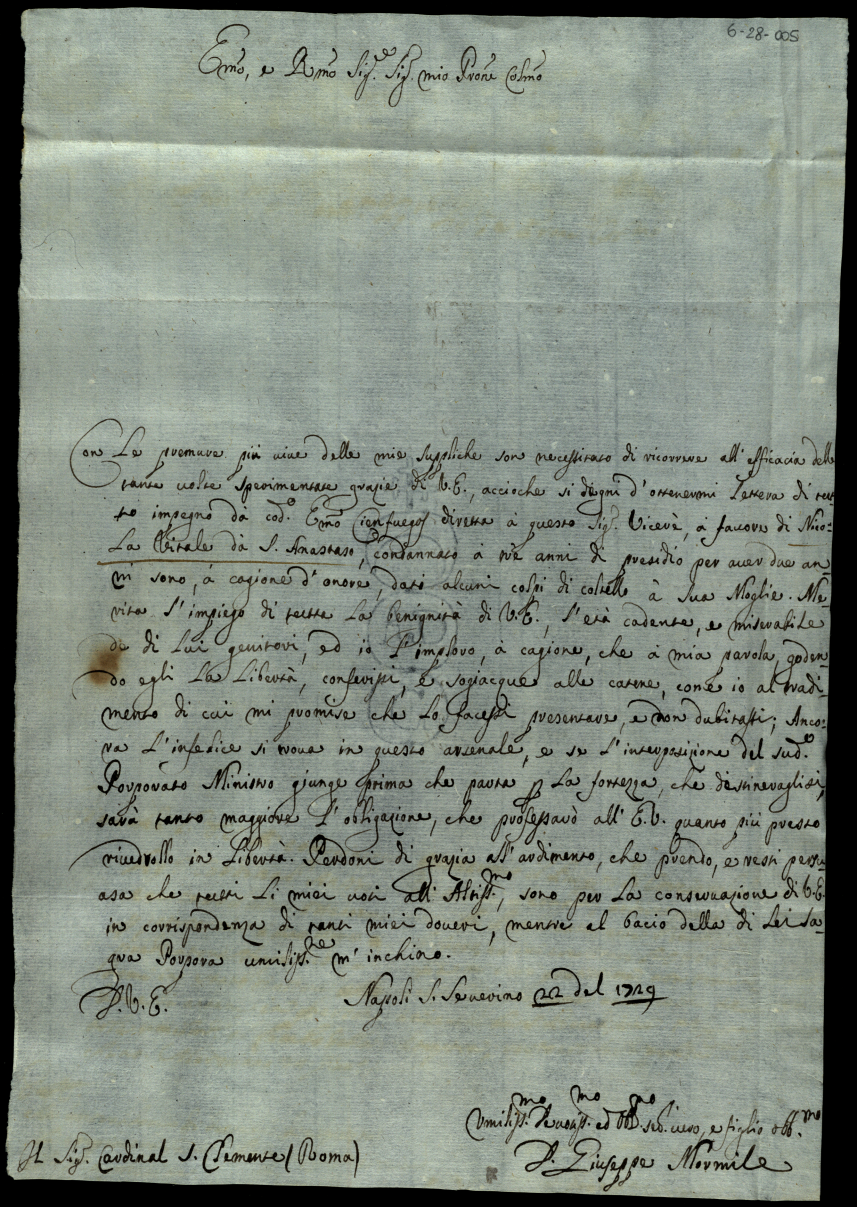 6-28-005
Emo, e Rmo Sig.r Sig.r mio Prone Colmo
Con Le premure più vive delle mie suppliche son necessitato di ricorrere all'efficacia delle
tante volte sperimentate grazie di V.E., accioche si degni d'ottenermi Lettera di tut-
to impegno dà cod.o Emo Cienfuegos diretta à questo Sig.r Vicerè, à favore di Nico:
La Vitale dà S. Anastaso, condannato à trè anni di presidio per aver due an
ni sono, à cagione d'onore, dati alcuni colpi di coltello à sua Moglie. Me-
rita l'impiego di tutta La benignità di V.E., l'età cadente, e miserabile
de di Lui genitori, ed io l'imploro, à cagione, che à mia parola, goden-
do egli La Libertà, conferissi, e sogiacque alle catene, come io al tradi-
mento di cui mi promise che Lo facessi presentare, e non dubitassi; Anco-
ra L'infelice si trova in questo arsenale, e se l'interposizione del sud.o
Porporato Ministro giunge prima che parta p La fortezza, che destineragliasi,
sarà tanto maggiore l'obligazione, che professarò all'E.V. quanto più presto
rivedrollo in Libertà. Perdoni di grazia all'ardimento, che prendo, e resti persu-
asa che tutti Li miei voti all'Altiss.mo, sono per La conservazione di V.E.
in corrispondenza di tanti miei doveri, mentre al bacio della di Lei Sa-
gra Porpora umiliss.te m'inchino.
D.V.E. Napoli S. Severino 22 del 1729
Umiliss.mo Devotiss.mo ed Obb.mo ser. vero, e figlio obb.mo
Il Sig.r Cardinal S. Clemente (Roma) D. Giuseppe Mormile